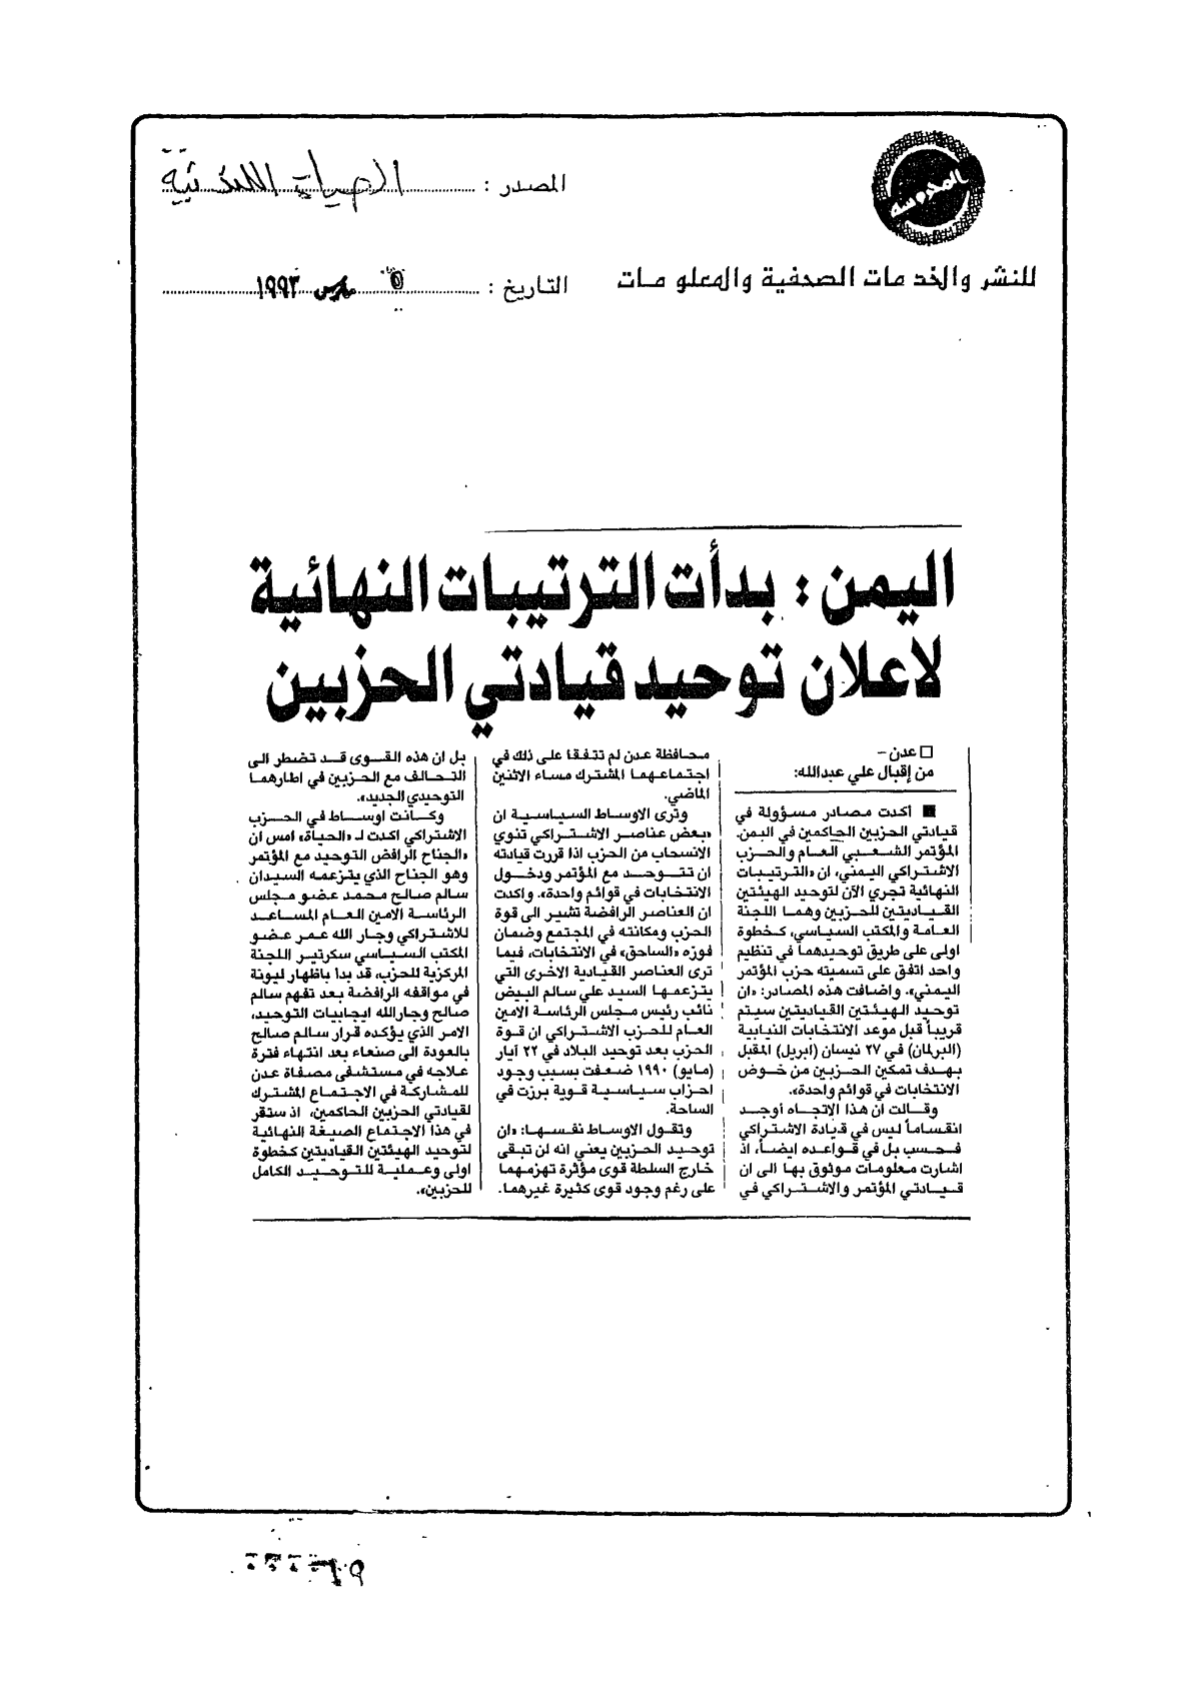 المحروسة
للنشر والخدمات الصحفية والمعلومات
المصدر : الحياة اللندنية
التاريخ : ٥ مارس ١٩٩٣
اليمن : بدأت الترتيبات النهائية
لاعلان توحيد قيادتي الحزبين
□ عدن –
من إقبال علي عبدالله:
■ اكدت مصادر مسؤولة في
قيادتي الحزبين الحاكمين في اليمن.
المؤتمر الشعبي العام والحزب
الاشتراكي اليمني، ان «الترتيبات
النهائية تجري الآن لتوحيد الهيئتين
القياديتين للحزبين وهما اللجنة
العامة والمكتب السياسي، كخطوة
اولى على طريق توحيدهما في تنظيم
واحد اتفق على تسميته حزب المؤتمر
اليمني». واضافت هذه المصادر: «ان
توحيد الهيئتين القياديتين سيتم
قريباً قبل موعد الانتخابات النيابية
(البرلمان) في ٢٧ نيسان (ابريل) المقبل
بهدف تمكين الحزبين من خوض
الانتخابات في قوائم واحدة».
وقالت ان هذا الاتجاه أوجد
انقساماً ليس في قيادة الاشتراكي
فحسب بل في قواعده ايضاً، اذ
اشارت معلومات موثوق بها الى ان
قيادتي المؤتمر والاشتراكي في
محافظة عدن لم تتفقا على ذلك في
اجتماعهما المشترك مساء الاثنين
الماضي.
وترى الاوساط السياسية ان
«بعض عناصر الاشتراكي تنوي
الانسحاب من الحزب اذا قررت قيادته
ان تتوحد مع المؤتمر ودخول
الانتخابات في قوائم واحدة». واكدت
ان العناصر الرافضة تشير الى قوة
الحزب ومكانته في المجتمع وضمان
فوزه «الساحق» في الانتخابات، فيما
ترى العناصر القيادية الاخرى التي
يتزعمها السيد علي سالم البيض
نائب رئيس مجلس الرئاسة الامين
العام للحزب الاشتراكي ان قوة
الحزب بعد توحيد البلاد في ٢٢ آيار
(مايو) ١٩٩٠ ضعفت بسبب وجود
احزاب سياسية قوية برزت في
الساحة.
وتقول الاوساط نفسها: «ان
توحيد الحزبين يعني انه لن تبقى
خارج السلطة قوى مؤثرة تهزمهما
على رغم وجود قوى كثيرة غيرهما.
بل ان هذه القوى قد تضطر الى
التحالف مع الحزبين في اطارهما
التوحيدي الجديد».
وكانت اوساط في الحزب
الاشتراكي اكدت لـ «الحياة» امس ان
«الجناح الرافض التوحيد مع المؤتمر
وهو الجناح الذي يتزعمه السيدان
سالم صالح محمد عضو مجلس
الرئاسة الامين العام المساعد
للاشتراكي وجار الله عمر عضو
المكتب السياسي سكرتير اللجنة
المركزية للحزب، قد بدا باظهار ليونة
في مواقفه الرافضة بعد تفهم سالم
صالح وجارالله ايجابيات التوحيد،
الامر الذي يؤكده قرار سالم صالح
بالعودة الى صنعاء بعد انتهاء فترة
علاجه في مستشفى مصفاة عدن
للمشاركة في الاجتماع المشترك
لقيادتي الحزبين الحاكمين، اذ ستقر
في هذا الاجتماع الصيغة النهائية
لتوحيد الهيئتين القياديتين كخطوة
اولى وعملية للتوحيد الكامل
للحزبين».